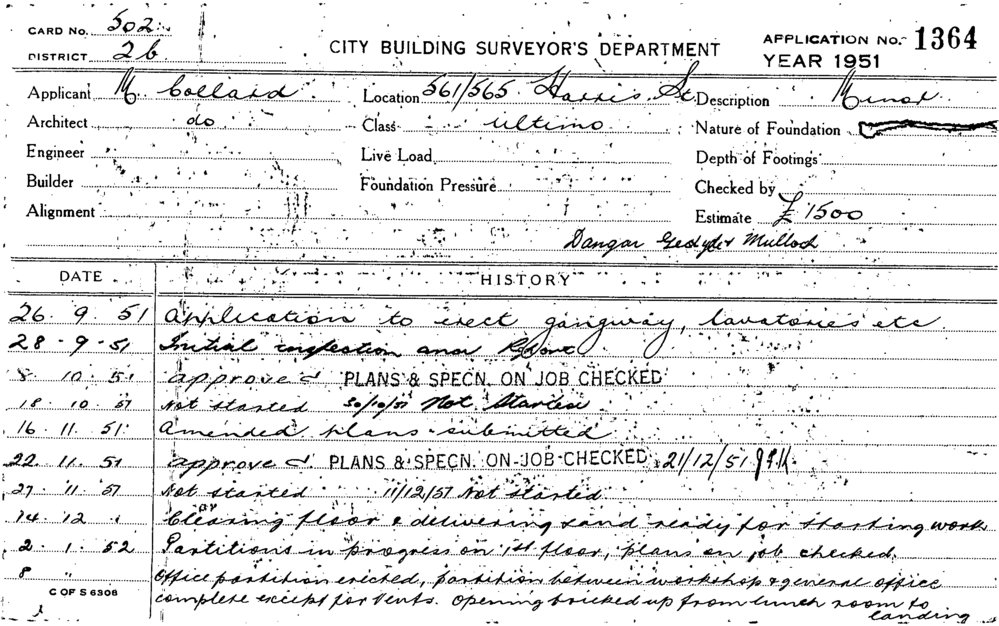 CARD No. 502
DISTRICT 26
CITY BUILDING SURVEYOR'S DEPARTMENT
APPLICATION No. 1364
YEAR 1951
Applicant M. Collard Location 561/565 Harris St. Description Minor
Architect do Class Ultimo Nature of Foundation
Engineer Live Load Depth of Footings
Builder Foundation Pressure Checked by
Alignment Estimate £ 1500
Dangar Gedye & Malloch
DATE HISTORY
26. 9. 51 Application to erect gangway, lavatories etc
28 - 9 - 51 Initial inspection and Report
8 10. 51 approved PLANS & SPECN. ON JOB CHECKED
18. 10. 51 Not started 30/10/51 Not Started
16. 11. 51. Amended plans submitted
22. 11. 51 approved. PLANS & SPECN. ON JOB CHECKED 21/12/51
27. 11. 51 Not started 11/12/51 Not started
14. 12 Clearing floor & delivering sand ready for starting work
2. 1. 52 Partitions in progress on 1st floor, plans on job checked.
8 " Office partition erected, partition between workshop & general office
complete except for vents. Opening bricked up from lunch room to
landing
C OF S 6308